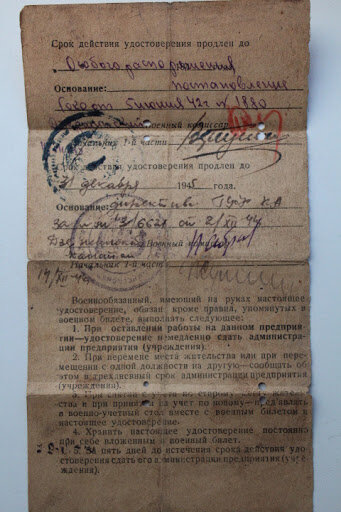 Срок действия удостоверения продлен до
Особого распоряжения
Основание: постановление
от 5 июня 42г № 1880
Военный комиссар
Начальник 1-й части
Срок действия удостоверения продлен до
31 декабря 1945 года.
Основание: директива КА
за № 3/662 от 2/XII 44
Военный
капитан
Начальник 1-й части
Военнообязанный, имеющий на руках настоящее
удостоверение, обязан кроме правил, упомянутых в
военном билете, выполнять следующее:
1. При оставлении работы на данном предприя-
тии—удостоверение немедленно сдать администра-
ции предприятия (учреждения).
2. При перемене места жительства или при пере-
мещении с одной должности на другую—сообщать об
этом в трехдневный срок администрации предприятия
(учреждения).
3. При снятии с учета по старому месту житель-
ства и при приеме на учет по новому—предъявлять
в военно-учетный стол вместе с военным билетом и
настоящее удостоверение.
4. Хранить настоящее удостоверение постоянно
при себе вложенным в военный билет.
5. За пять дней до истечения срока действия удо-
стоверения сдать его администрации предприятия (учре-
ждения).